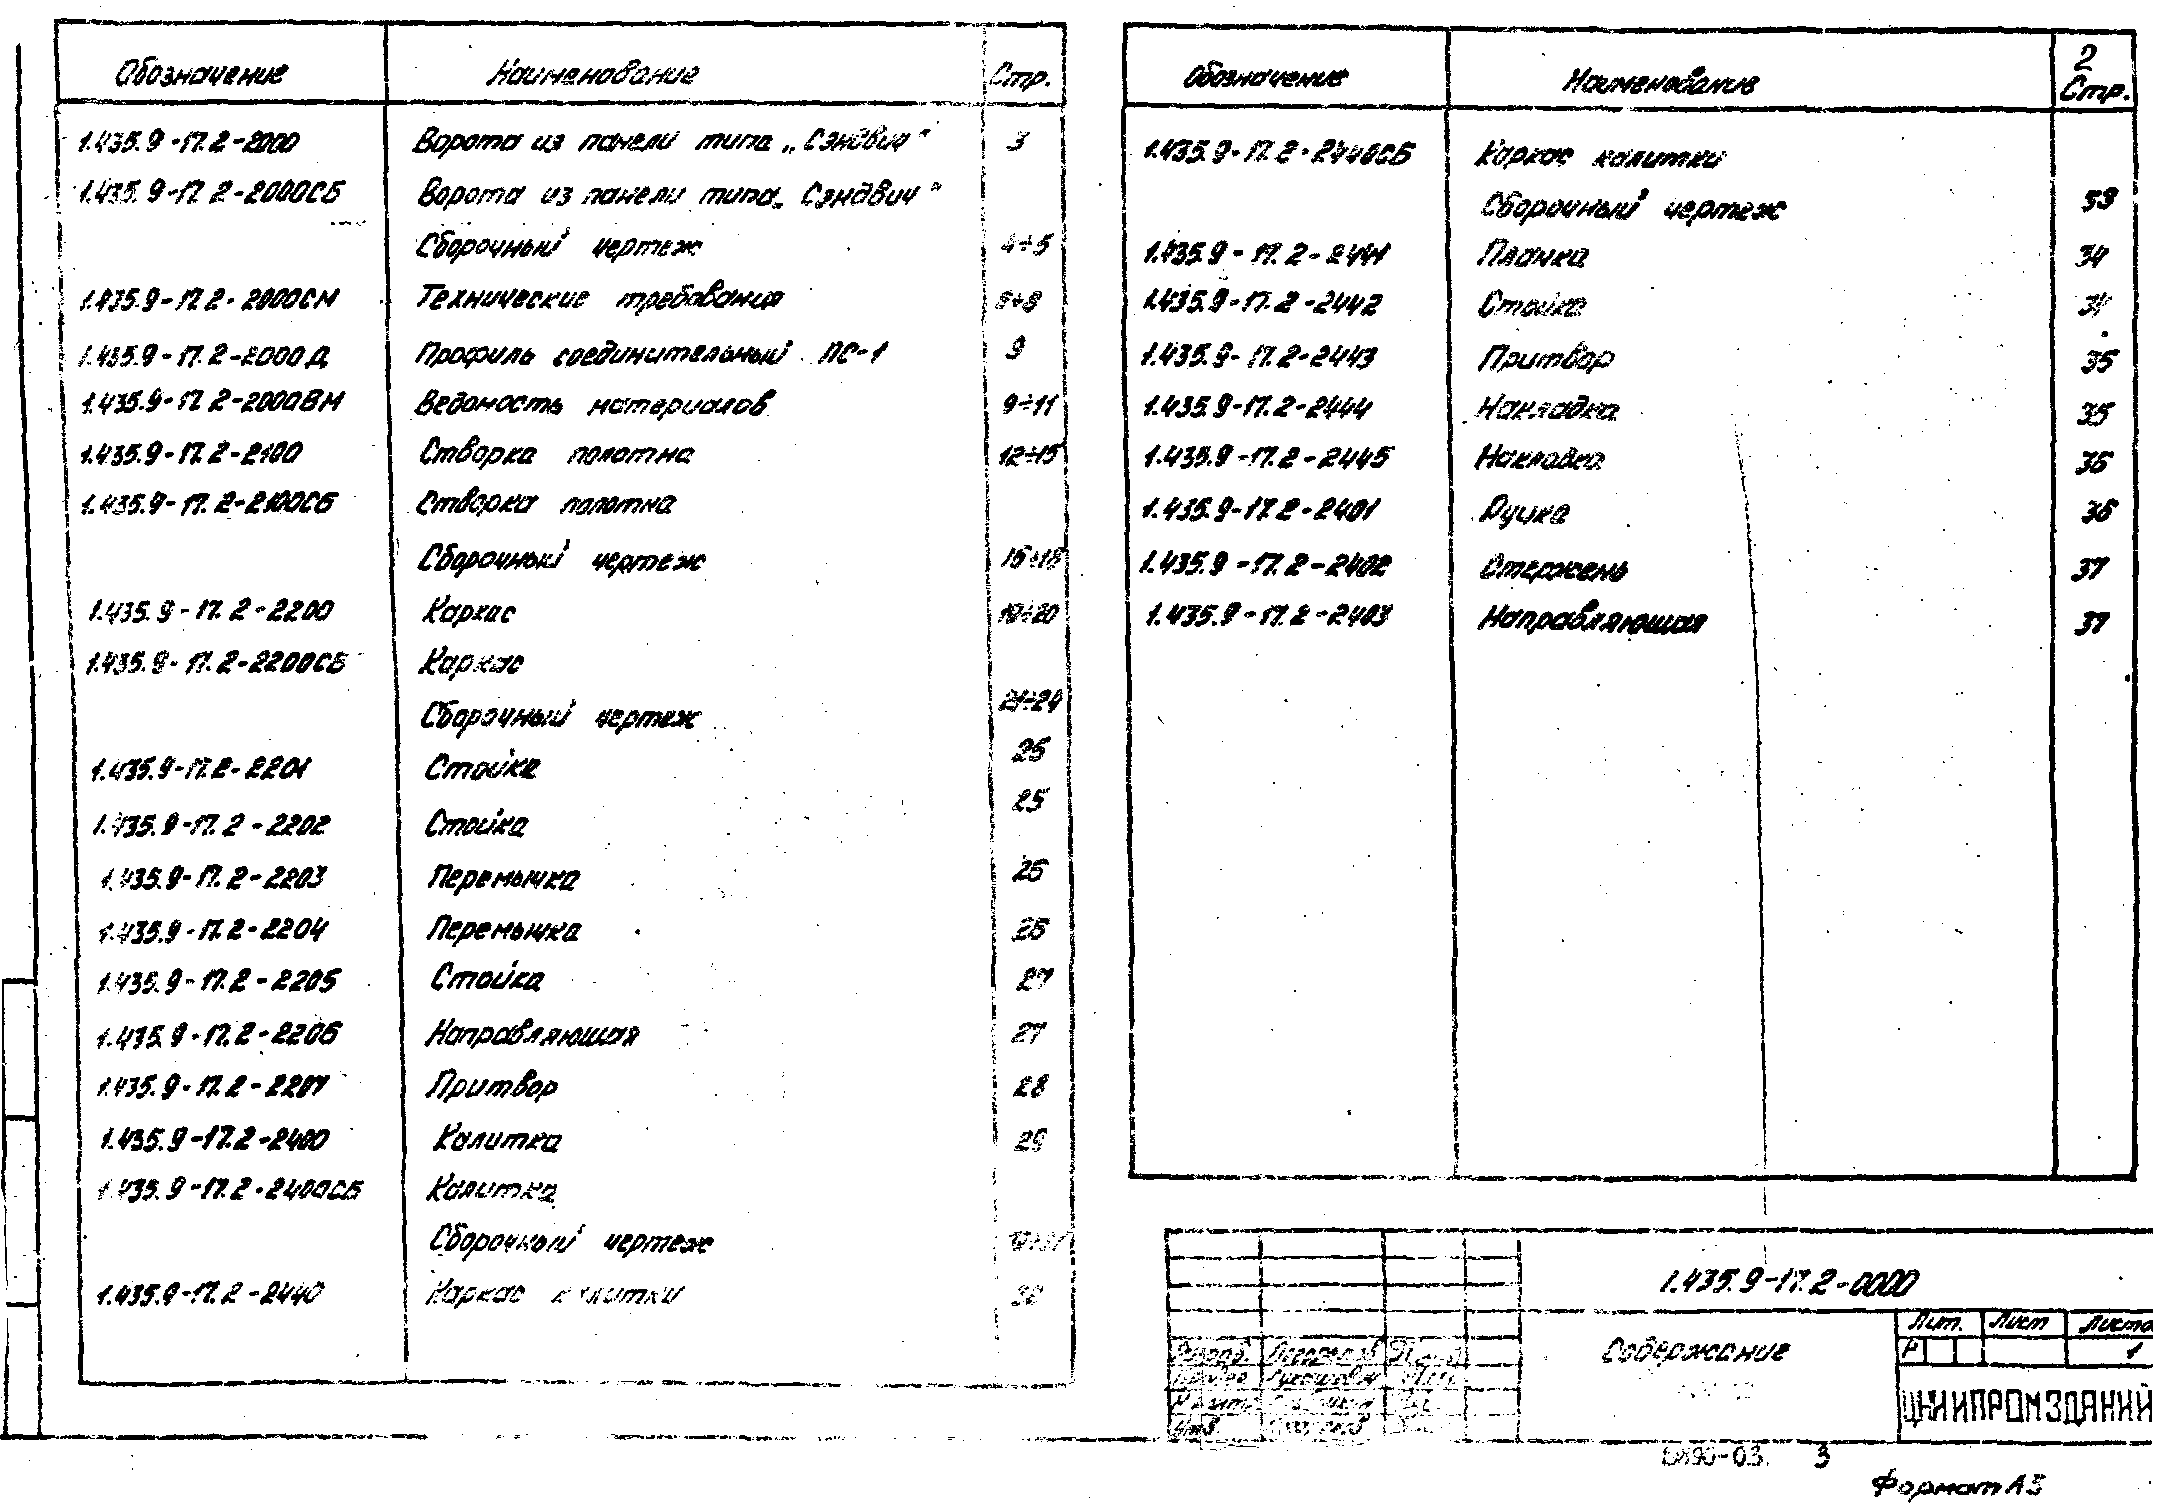 Обозначение Наименование Стр.
1.435.9-17.2-2000 Ворота из панели типа „Сэндвич" 3
1.435.9-17.2-2000СБ Ворота из панели типа „Сэндвич"
Сборочный чертеж 4÷5
1.435.9-17.2-2000СМ Технические требования 6÷8
1.435.9-17.2-2000Д Профиль соединительный ПС-1 9
1.435.9-17.2-2000ВМ Ведомость материалов 9÷11
1.435.9-17.2-2100 Створка полотна 12÷15
1.435.9-17.2-2100СБ Створка полотна
Сборочный чертеж 16÷18
1.435.9-17.2-2200 Каркас 19÷20
1.435.9-17.2-2200СБ Каркас
Сборочный чертеж 21÷24
1.435.9-17.2-2201 Стойка 25
1.435.9-17.2-2202 Стойка 25
1.435.9-17.2-2203 Перемычка 26
1.435.9-17.2-2204 Перемычка 26
1.435.9-17.2-2205 Стойка 27
1.435.9-17.2-2206 Направляющая 27
1.435.9-17.2-2207 Притвор 28
1.435.9-17.2-2400 Калитка 29
1.435.9-17.2-2400СБ Калитка
Сборочный чертеж
1.435.9-17.2-2440 Каркас калитки 32
2
Обозначение Наименование Стр.
1.435.9-17.2-2440СБ Каркас калитки
Сборочный чертеж 33
1.435.9-17.2-2441 Планка 34
1.435.9-17.2-2442 Стойка 34
1.435.9-17.2-2443 Притвор 35
1.435.9-17.2-2444 Накладка 35
1.435.9-17.2-2445 Накладка 36
1.435.9-17.2-2401 Ручка 36
1.435.9-17.2-2402 Стержень 37
1.435.9-17.2-2403 Направляющая 37
1.435.9-17.2-0000
Содержание
Лит. Лист Листо
Р 1
Разраб.
Н.конт.
Утв
ЦНИИПРОМЗДАНИЙ
3
Формат А3